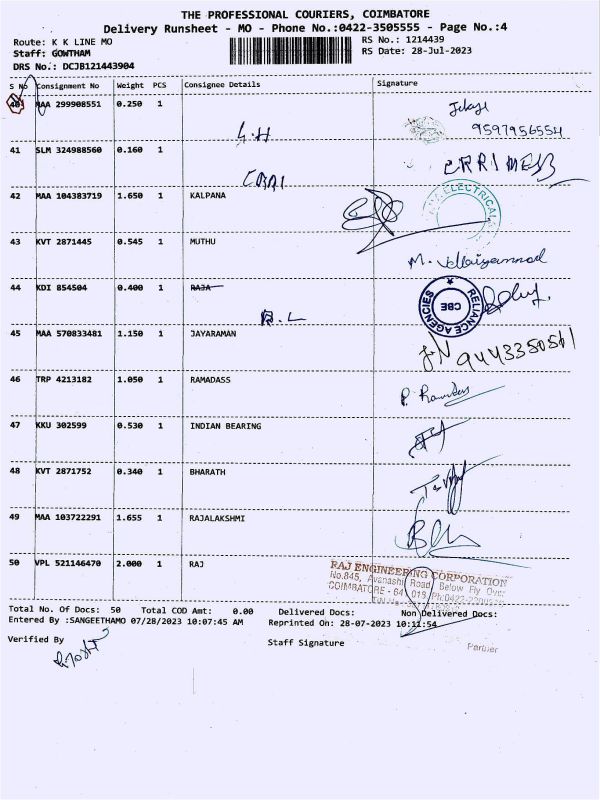 THE PROFESSIONAL COURIERS, COIMBATORE
Delivery Runsheet - MO - Phone No.:0422-3505555 - Page No.:4
Route: K K LINE MO RS No.: 1214439
Staff: GOWTHAM RS Date: 28-Jul-2023
DRS No.: DCJB121443904
S No Consignment No Weight PCS Consignee Details Signature
40 MAA 299908551 0.250 1
9597956554
41 SLM 324988560 0.160 1
CRRI MESS
CRRI
42 MAA 104383719 1.650 1 KALPANA
ELECTRICAL
43 KVT 2871445 0.545 1 MUTHU
44 KDI 854504 0.400 1 RAJA
R.L
RELIANCE AGENCIES
CBE
45 MAA 570833481 1.150 1 JAYARAMAN
JN 9443350501
46 TRP 4213182 1.050 1 RAMADASS
P. Ramdas
47 KKU 302599 0.530 1 INDIAN BEARING
48 KVT 2871752 0.340 1 BHARATH
49 MAA 103722291 1.655 1 RAJALAKSHMI
50 VPL 521146470 2.000 1 RAJ
RAJ ENGINEERING CORPORATION
No.845, Avanashi Road, Below Fly Over
COIMBATORE - 64 018, Ph:0422-
Total No. Of Docs: 50 Total COD Amt: 0.00 Delivered Docs: Non Delivered Docs:
Entered By :SANGEETHAMO 07/28/2023 10:07:45 AM Reprinted On: 28-07-2023 10:11:54
Verified By Staff Signature
Partner